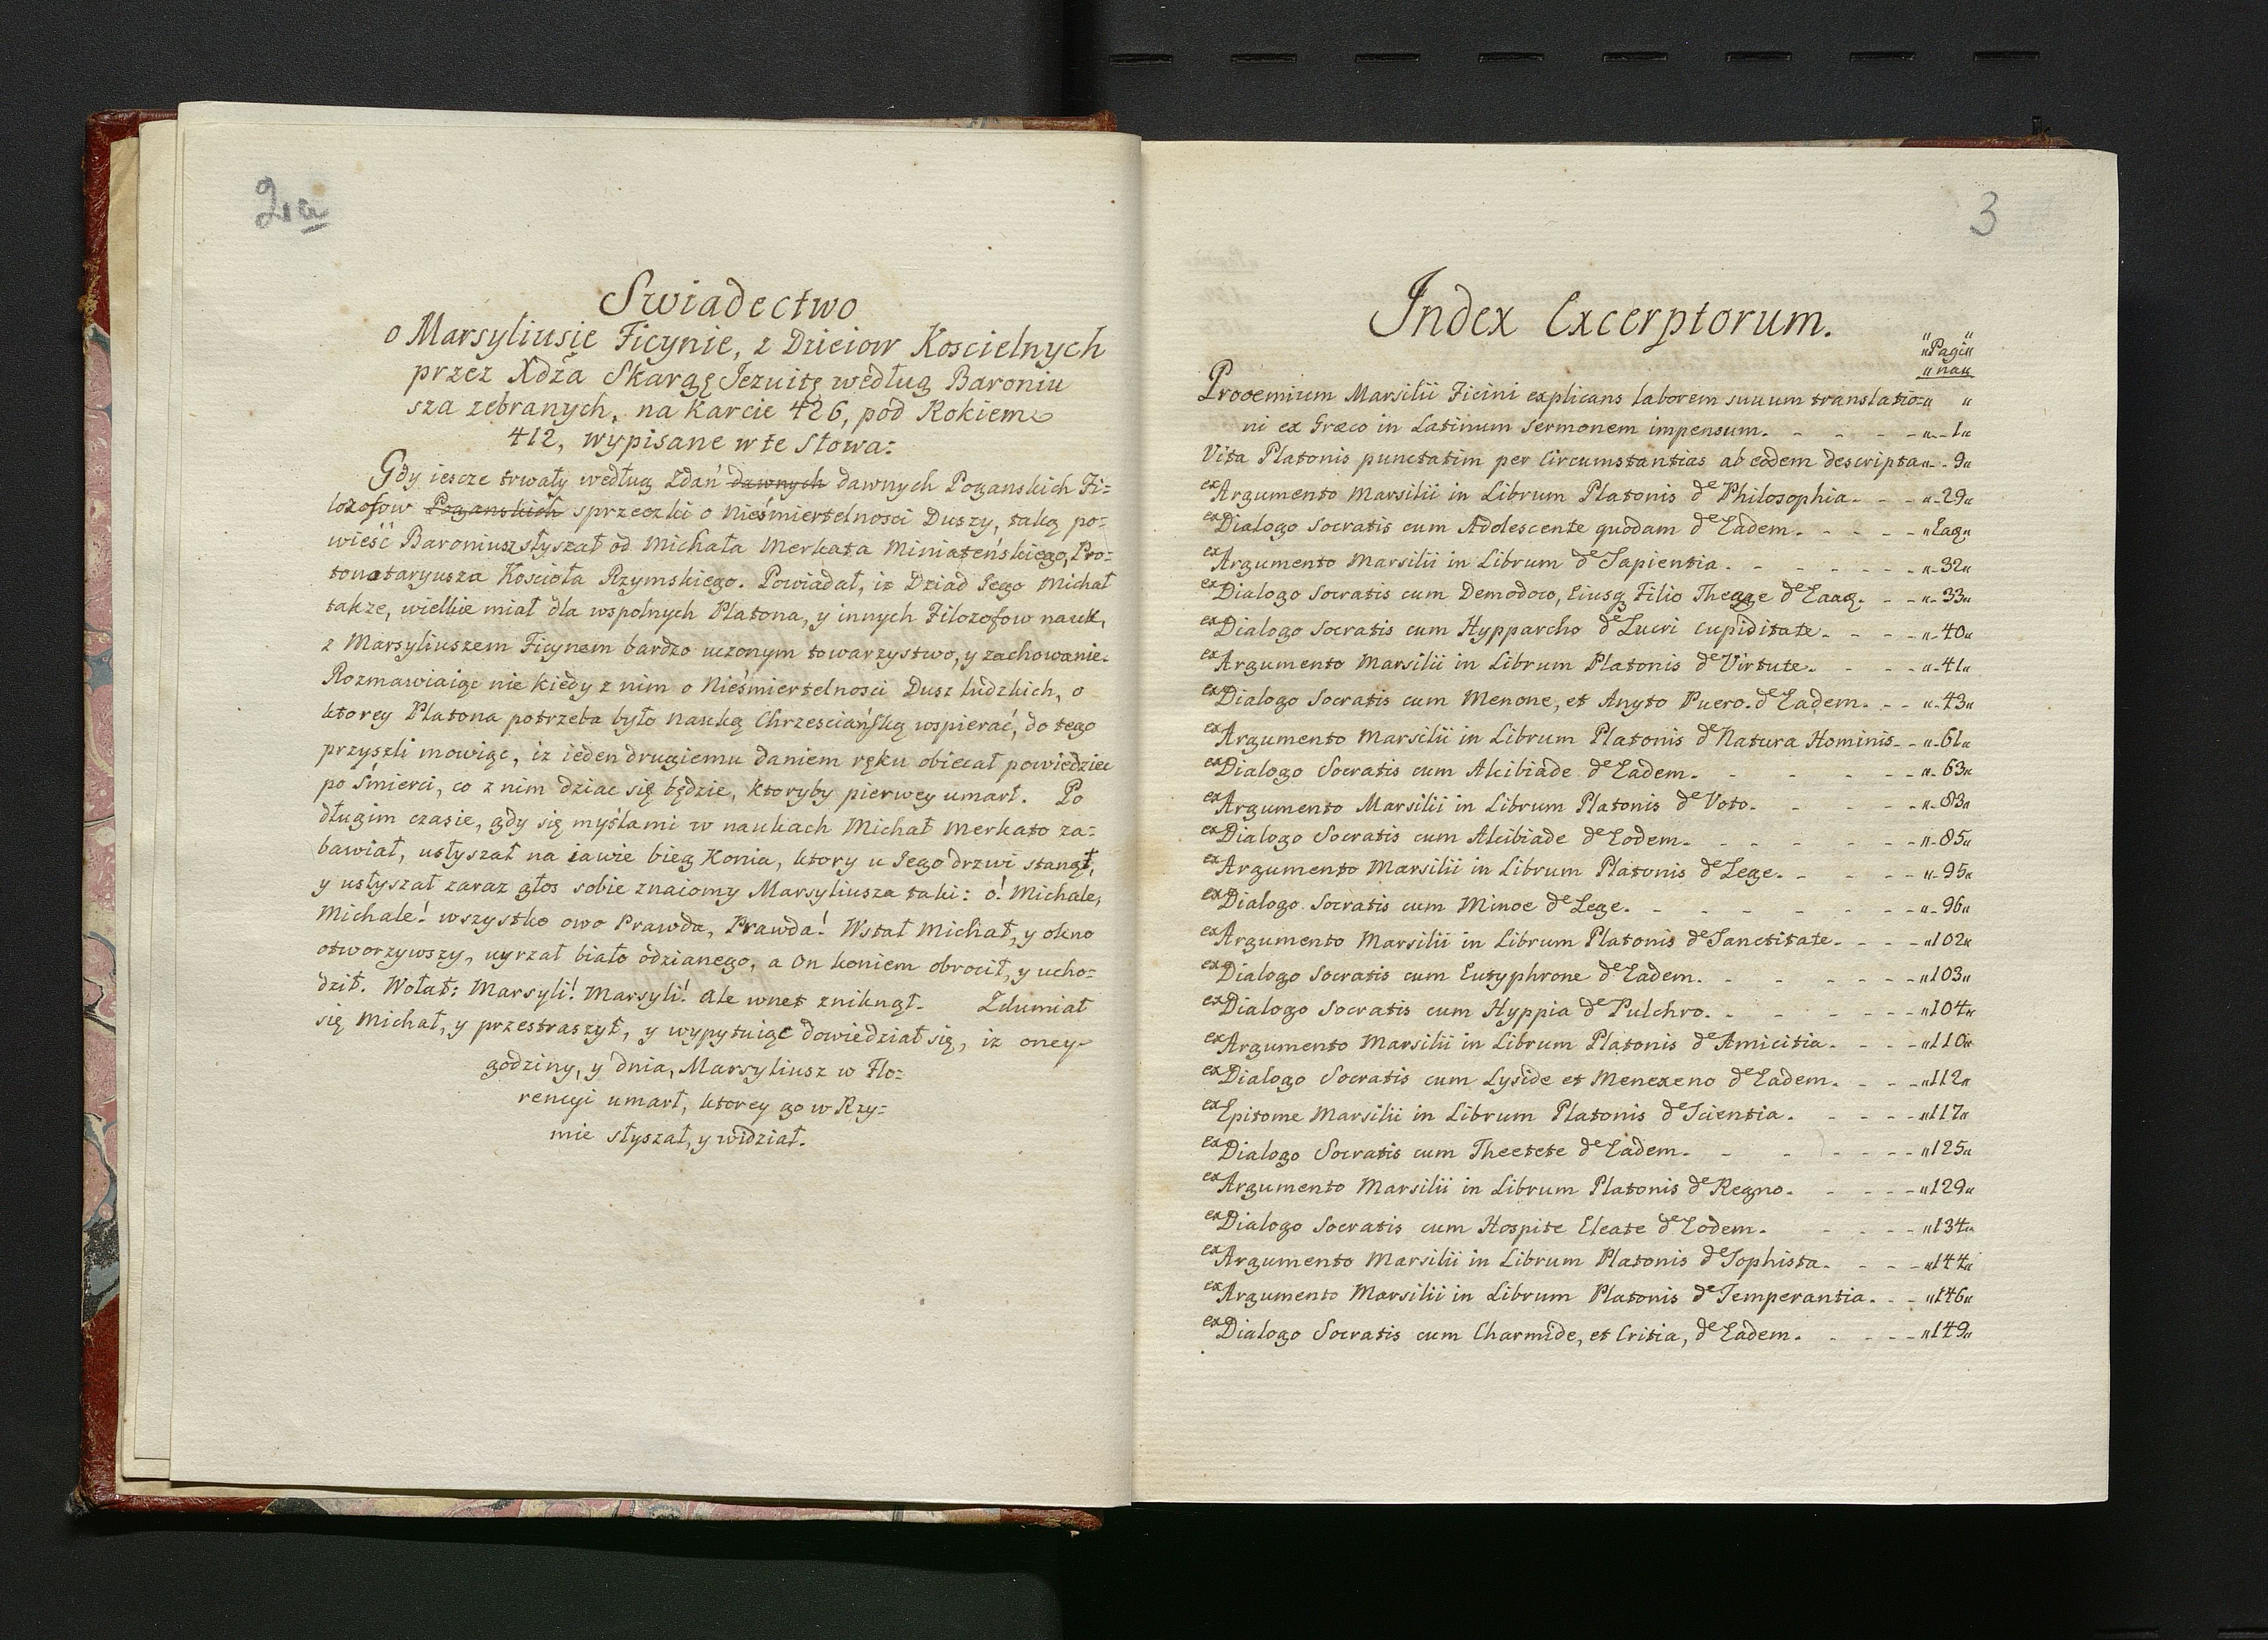 2a
Swiadectwo
o Marsyliusie Ficynie, z Dzieiow Koscielnych
przez Xdza Skargę Jezuitę według Baroniu
sza zebranych, na Karcie 426, pod Rokiem
412, wypisane w te słowa:
Gdy iescze trwały według Zdań dawnych dawnych Poganskich Fi=
lozofow Poganskich sprzeczki o Nieśmiertelnosci Duszy, taką po=
wieść Baroniusz słyszał od Michała Merkata Miniateńskiego, Pro=
tonotaryusza Kościoła Rzymskiego. Powiadał, iz Dziad Jego Michał
takze, wielkie miał dla wspolnych Platona, y innych Filozofow nauk,
z Marsyliuszem Ficynem bardzo uczonym towarzystwo, y zachowanie.
Rozmawiaiąc nie kiedy z nim o Nieśmiertelnosci Dusz ludzkich, o
ktorey Platona potrzeba było nauką Chrzesciańską wspierać, do tego
przyszli mowiąc, iz ieden drugiemu daniem ręku obiecał powiedziec
po śmierci, co z nim dziac się będzie, ktoryby pierwey umarł. Po
długim czasie, gdy się myślami w naukach Michał Merkato za=
bawiał, usłyszał na iawie bieg Konia, ktory u Jego drzwi stanął,
y usłyszał zaraz głos sobie znaiomy Marsyliusza taki: o! Michale,
Michale! wszystko owo Prawda, Prawda! Wstał Michał, y okno
otworzywszy, uyrzał biało odzianego, a On koniem obrocił, y ucho=
dził. Wołał: Marsyli! Marsyli! Ale wnet zniknął. Zdumiał
się Michał, y przestraszył, y wypytuiąc dowiedział się, iz oney
godziny, y dnia, Marsyliusz w Flo=
rencyi umarł, ktorey go w Rzy=
mie słyszał, y widział.
3
Index Excerptorum.
"Pagi"
"na"
Prooemium Marsilii Ficini explicans laborem suuum translatio=
ni ex Græco in Latinum Sermonem impensum. - - - - "1"
Vita Platonis punctatim per Circumstantias ab eodem descripta "9"
ex Argumento Marsilii in Librum Platonis de Philosophia. - - "29"
ex Dialogo Socratis cum Adolescente quodam de Eadem. - - - "Eaq"
ex Argumento Marsilii in Librum de Sapientia. - - - - "32"
ex Dialogo Socratis cum Demodoco, Eiusq Filio Theage de Eaaq. - - "33"
ex Dialogo Socratis cum Hypparcho de Lucri Cupiditate. - - - "40"
ex Argumento Marsilii in Librum Platonis de Virtute. - - - "41"
ex Dialogo Socratis cum Menone, et Anyto Puero. de Eadem. - - "43"
ex Argumento Marsilii in Librum Platonis de Natura Hominis. - - "61"
ex Dialogo Socratis cum Alcibiade de Eadem. - - - - "63"
ex Argumento Marsilii in Librum Platonis de Voto. - - - - "83"
ex Dialogo Socratis cum Alcibiade de Eodem. - - - - "85"
ex Argumento Marsilii in Librum Platonis de Lege. - - - - "95"
ex Dialogo Socratis cum Minoe de Lege. - - - - - "96"
ex Argumento Marsilii in Librum Platonis de Sanctitate. - - - "102"
ex Dialogo Socratis cum Eutyphrone de Eadem. - - - - "103"
ex Dialogo Socratis cum Hyppia de Pulchro. - - - - "104"
ex Argumento Marsilii in Librum Platonis de Amicitia. - - - "110"
ex Dialogo Socratis cum Lyside et Menexeno de Eadem. - - - "112"
ex Epitome Marsilii in Librum Platonis de Scientia. - - - "117"
ex Dialogo Socratis cum Theetete de Eadem. - - - - "125"
ex Argumento Marsilii in Librum Platonis de Regno. - - - "129"
ex Dialogo Socratis cum Hospite Eleate de Eodem. - - - "134"
ex Argumento Marsilii in Librum Platonis de Sophista. - - - "144"
ex Argumento Marsilii in Librum Platonis de Temperantia. - - "146"
ex Dialogo Socratis cum Charmide, et Critia, de Eadem. - - - "149"